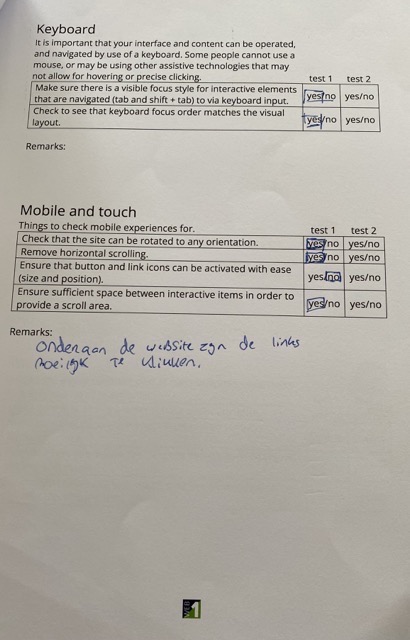 Keyboard
It is important that your interface and content can be operated,
and navigated by use of a keyboard. Some people cannot use a
mouse, or may be using other assistive technologies that may
not allow for hovering or precise clicking. test 1 test 2
Make sure there is a visible focus style for interactive elements
that are navigated (tab and shift + tab) to via keyboard input. yes/no yes/no
Check to see that keyboard focus order matches the visual
layout. yes/no yes/no
Remarks:
Mobile and touch
Things to check mobile experiences for. test 1 test 2
Check that the site can be rotated to any orientation. yes/no yes/no
Remove horizontal scrolling. yes/no yes/no
Ensure that button and link icons can be activated with ease
(size and position). yes/no yes/no
Ensure sufficient space between interactive items in order to
provide a scroll area. yes/no yes/no
Remarks:
onderaan de website zijn de links
moeilijk te klikken.
WEB 1